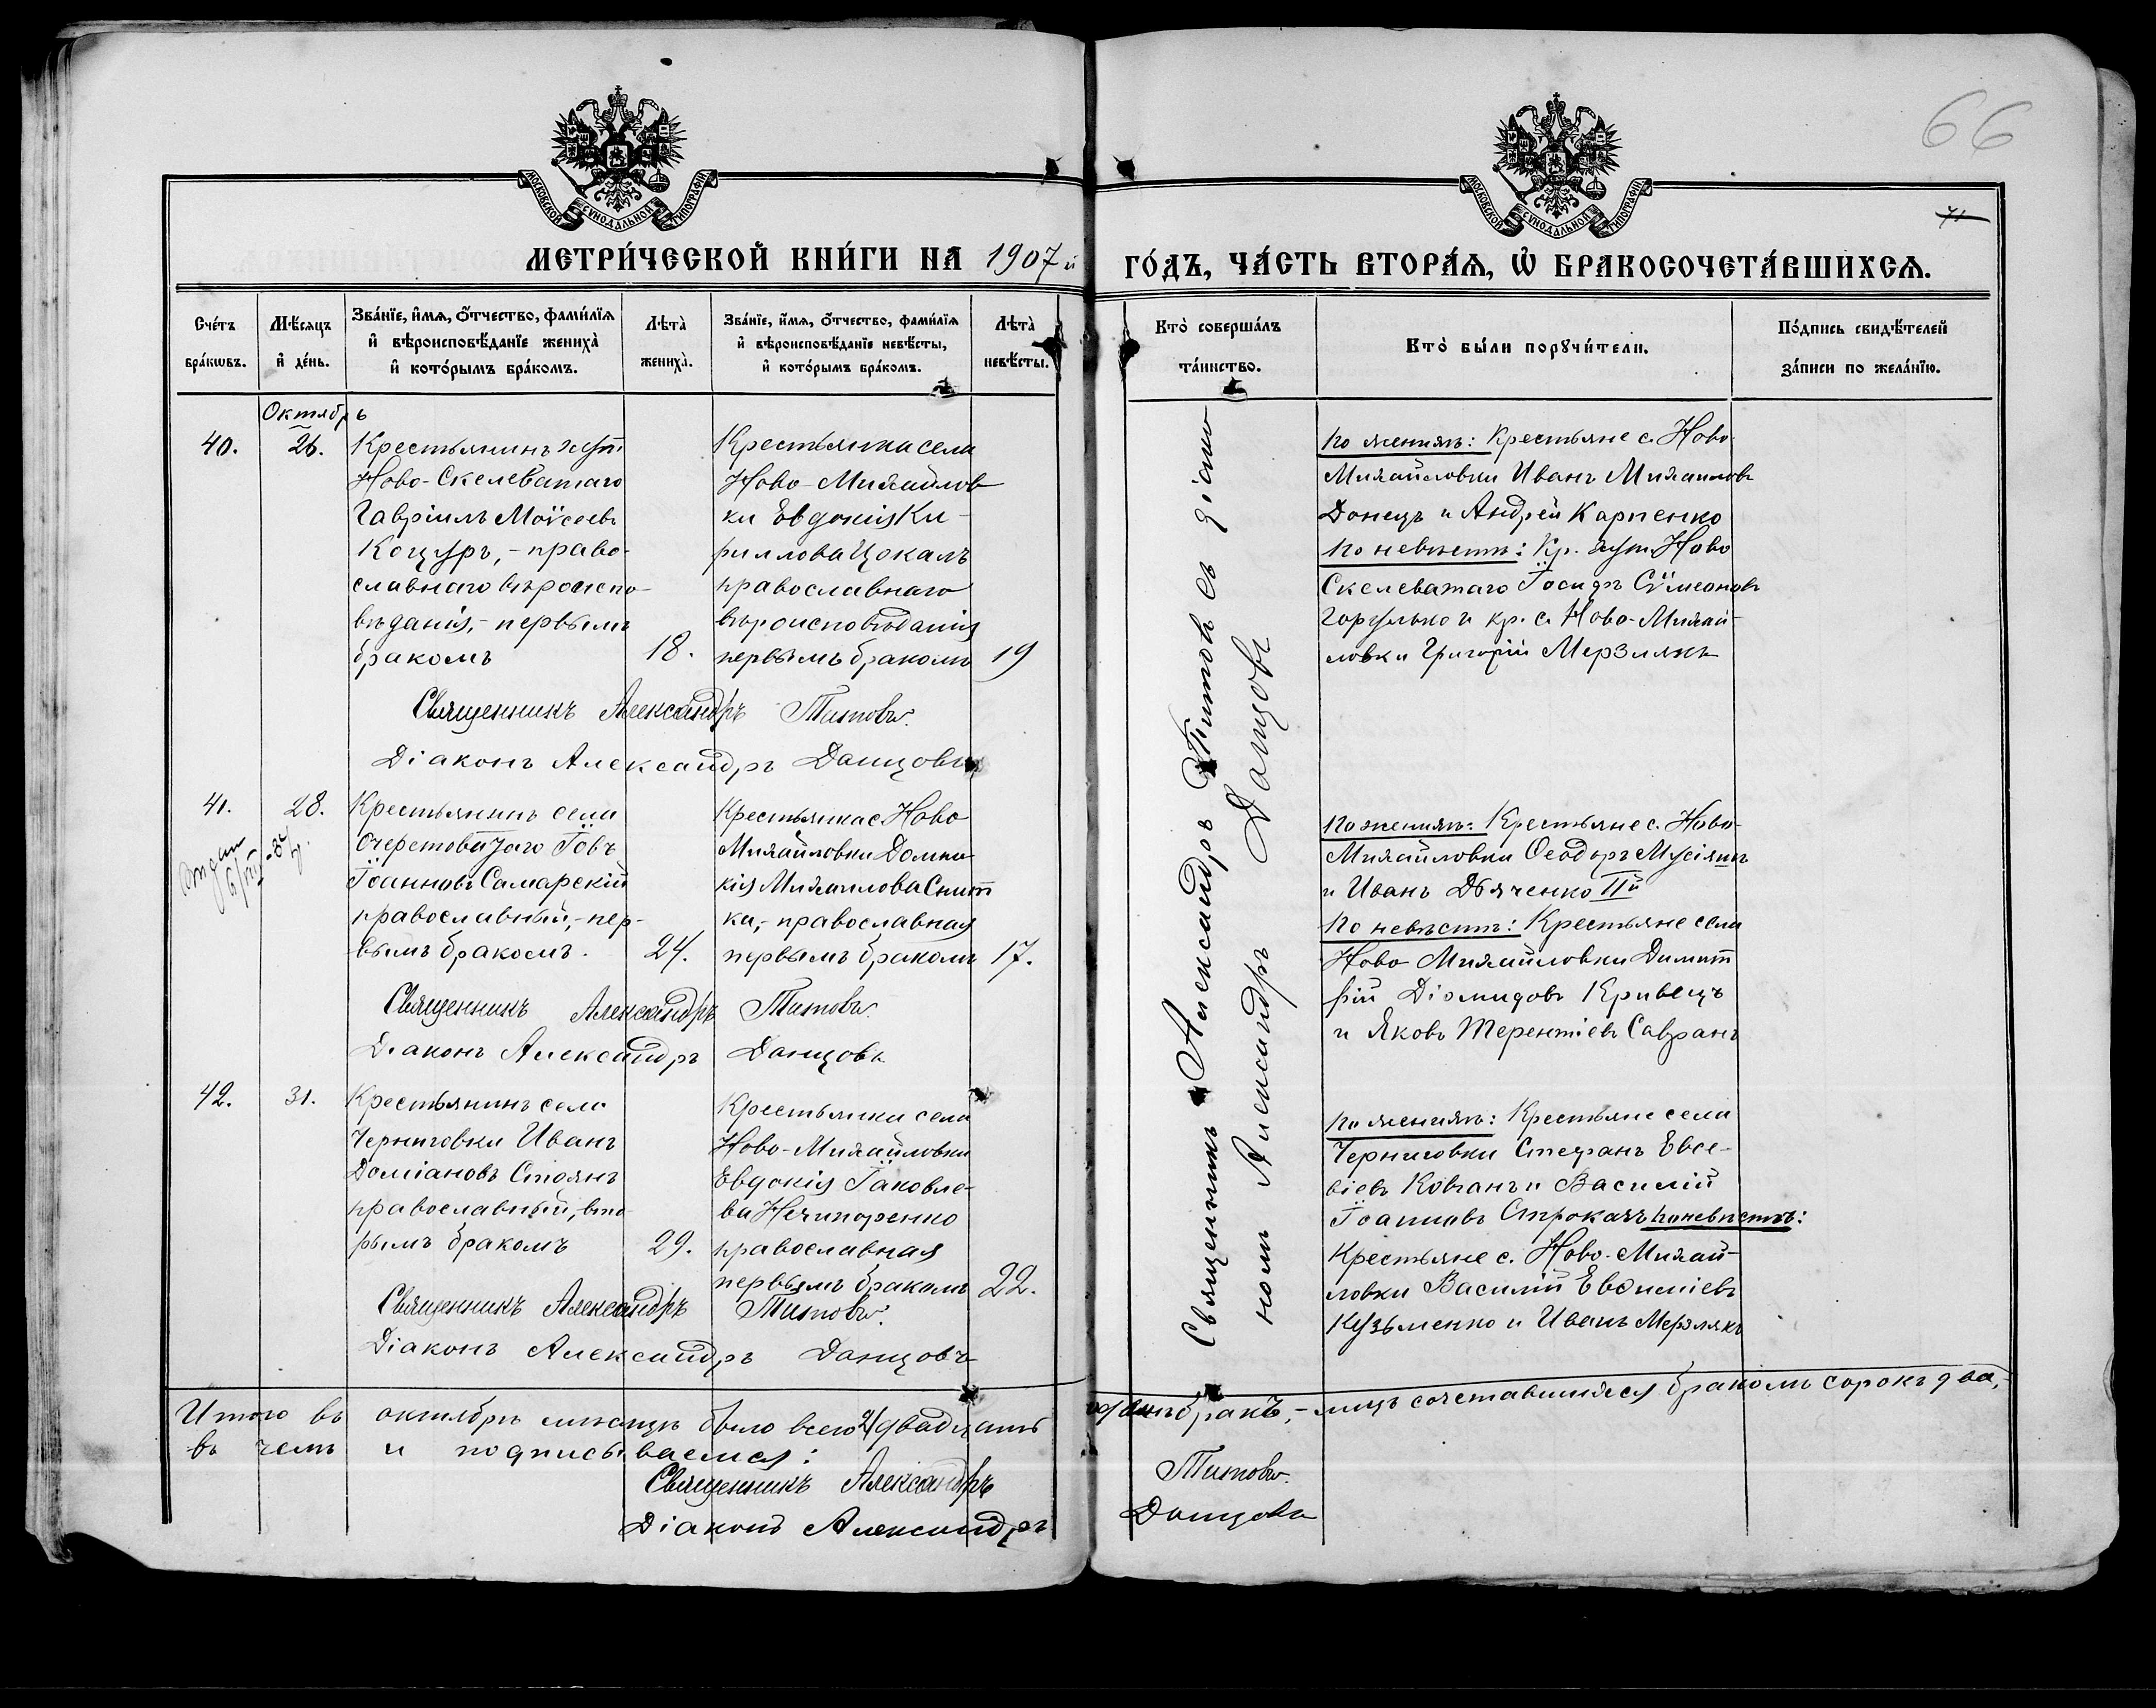 66
71
МОСКОВСКОЙ СѴНОДАЛЬНОЙ ТИПОГРАФІИ.
МОСКОВСКОЙ СѴНОДАЛЬНОЙ ТИПОГРАФІИ.
МЕТРИ́ЧЕСКОЙ КНИ́ГИ НА 1907й
ГО́ДЪ, ЧА́СТЬ ВТОРА́Ѧ, Ѡ҆ БРАКОСОЧЕТА́ВШИХСѦ.
Сче́тъ бра́кѡвъ.
Мѣ́сяцъ и҆ де́нь.
Зва́нїе, и҆́мѧ, ѻ҆́тчество, фами́лїѧ и҆ вѣроисповѣ́данїе жениха̀ и҆ кото́рымъ бра́комъ.
Лѣта̀ жениха̀.
Зва́нїе, и҆́мѧ, ѻ҆́тчество, фами́лїѧ и҆ вѣроисповѣ́данїе невѣ́сты, и҆ кото́рымъ бра́комъ.
Лѣта̀ невѣ́сты.
Кто̀ соверша́лъ та́инство.
Кто̀ бы́ли порꙋчи́тели.
По́дпись свидѣ́телей за́писи по жела́нїю.
Октябрь
40.
26.
Крестьянинъ хут.
Ново-Скелеватаго
Гавріилъ Моѵсеевъ
Коцуръ, - право-
славнаго вѣроиспо-
вѣданія, - первымъ
бракомъ
18.
Крестьянка села
Ново-Михайлов
ки Евдокія Ки-
риллова Цокалъ
православнаго
вѣроисповѣданія
первымъ бракомъ
19
Священникъ Александръ Титовъ.
Діаконъ Александръ Данцовъ
По женихѣ: Крестьяне с. Ново-
Михайловки Иванъ Михаиловъ
Донецъ и Андрей Карпенко
По невѣстѣ: Кр. хут. Ново
Скелеватаго Іосифъ Сѵмеоновъ
Горулько и кр. с. Ново-Михай-
ловки Григорій Мерзлякъ
41.
28.
Крестьянинъ села
Очеретоватаго Іовъ
Іоанновъ Самарскій
православный, - пер-
вымъ бракомъ.
24.
Крестьянка с. Ново
Михайловки Домни-
кія Михаилова Снит
ка, - православная
первымъ бракомъ
17.
Священникъ Александръ Титовъ.
Діаконъ Александръ Данцовъ
По женихѣ: Крестьяне с. Ново-
Михайловки Ѳеодоръ Мусіяцъ
и Иванъ Дьяченко IIй
По невѣстѣ: Крестьяне села
Ново Михайловки Димит
рій Діомидовъ Кривецъ
и Яковъ Терентіевъ Савранъ
42.
31.
Крестьянинъ села
Черниговки Иванъ
Доміановъ Стоянъ
православный, вто-
рымъ бракомъ
29.
Крестьянка села
Ново-Михайловки
Евдокія Іаковле-
ва Нечипоренко
православная
первымъ бракомъ
22.
Священникъ Александръ Титовъ.
Діаконъ Александръ Данцовъ
По женихѣ: Крестьяне села
Черниговки Стефанъ Евсе-
віевъ Ковганъ и Василій
Іоанновъ Строкачъ По невѣстѣ:
Крестьяне с. Ново-Михай-
ловки Василій Евѳиміевъ
Кузьменко и Иванъ Мерзлякъ
Священникъ Александръ Титовъ съ діако
номъ Александръ Данцовъ
Итого въ октябрѣ мѣсяцѣ было всего 21 двадцать
одинъ бракъ, - лицъ сочетавшихся бракомъ сорокъ два, -
въ чемъ и подписываемся:
Священникъ Александръ Титовъ.
Діаконъ Александръ Данцовъ